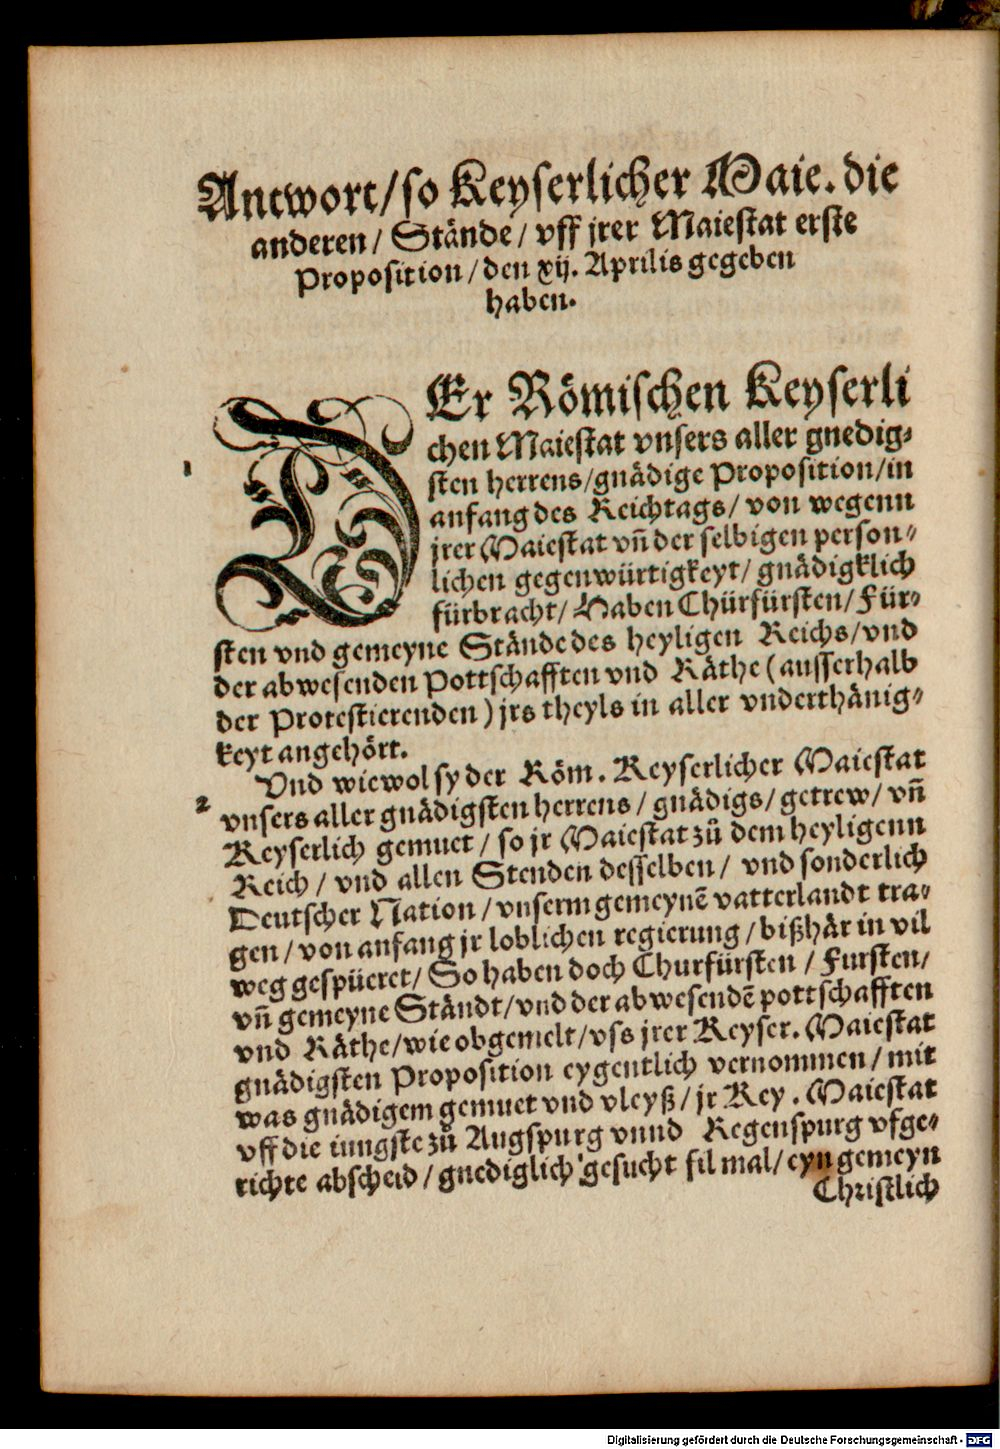 Antwort/ so Keyserlicher Maie. die
anderen/ Stände/ vff jrer Maiestat erste
Proposition/ den xij. Aprilis gegeben
haben.
DEr Römischen Keyserli
chen Maiestat vnsers aller gnedig-
1 sten herrens/ gnädige Proposition/ in
anfang des Reichtags/ von wegenn
jrer Maiestat vñ der selbigen person-
lichen gegenwürtigkeyt/ gnädigklich
fürbracht/ Haben Chürfürsten/ Für-
sten vnd gemeyne Stände des heyligen Reichs/ vnd
der abwesenden Pottschafften vnd Räthe (ausserhalb
der Protestierenden) jrs theyls in aller vnderthänig-
keyt angehört.
Vnd wiewol sy der Röm. Keyserlicher Maiestat
2 vnsers aller gnädigsten herrens/ gnädigs/ getrew/ vñ
Keyserlich gemuet/ so jr Maiestat zů dem heyligenn
Reich/ vnd allen Stenden desselben/ vnd sonderlich
Deutscher Nation/ vnserm gemeynẽ vatterlandt tra-
gen/ von anfang jr loblichen regierung/ bißhär in vil
weg gespüeret/ So haben doch Churfürsten/ Fursten/
vñ gemeyne Ständt/ vnd der abwesendẽ pottschafften
vnd Räthe/ wie obgemelt/ vss jrer Keyser. Maiestat
gnädigsten Proposition eygentlich vernommen/ mit
was gnädigem gemuet vnd vleyß/ jr Key. Maiestat
vff die iungste zů Augspurg vnnd Regenspurg vfge-
richte abscheid/ gnediglich gesucht fil mal/ eyn gemeyn
Christlich
Digitalisierung gefördert durch die Deutsche Forschungsgemeinschaft - DFG